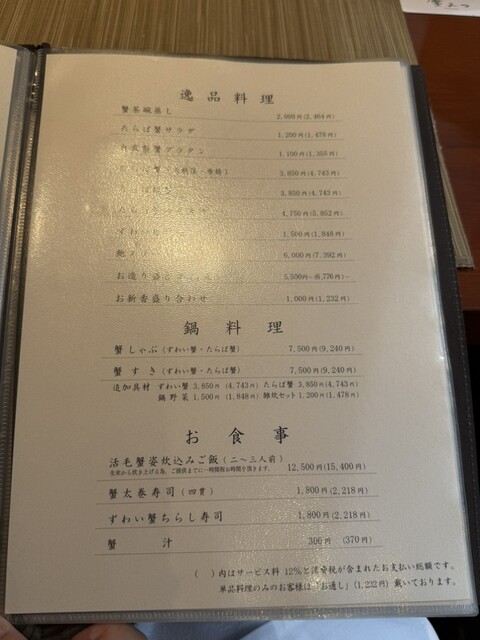 逸品料理
蟹茶碗蒸し 2,000円(2,464円)
たらば蟹サラダ 1,200円(1,478円)
蟹グラタン 1,100円(1,355円)
3,850円(4,743円)
3,850円(4,743円)
4,750円(5,852円)
1,500円(1,848円)
6,000円(7,392円)
お造り盛 5,500円~(6,776円)~
お新香盛り合わせ 1,000円(1,232円)
鍋料理
蟹しゃぶ(ずわい蟹・たらば蟹) 7,500円(9,240円)
蟹すき(ずわい蟹・たらば蟹) 7,500円(9,240円)
追加具材 ずわい蟹 3,850円(4,743円) たらば蟹 3,850円(4,743円)
鍋野菜 1,500円(1,848円) 雑炊セット 1,200円(1,478円)
お食事
活毛蟹姿炊込みご飯(二~三人前) 12,500円(15,400円)
生米から炊き上げる為、ご提供までに一時間程お時間を頂きます。
蟹太巻寿司(四貫) 1,800円(2,218円)
ずわい蟹ちらし寿司 1,800円(2,218円)
蟹汁 300円(370円)
( )内はサービス料 12%と消費税が含まれたお支払い総額です。
単品料理のみのお客様は「お通し」(1,232円)戴いております。